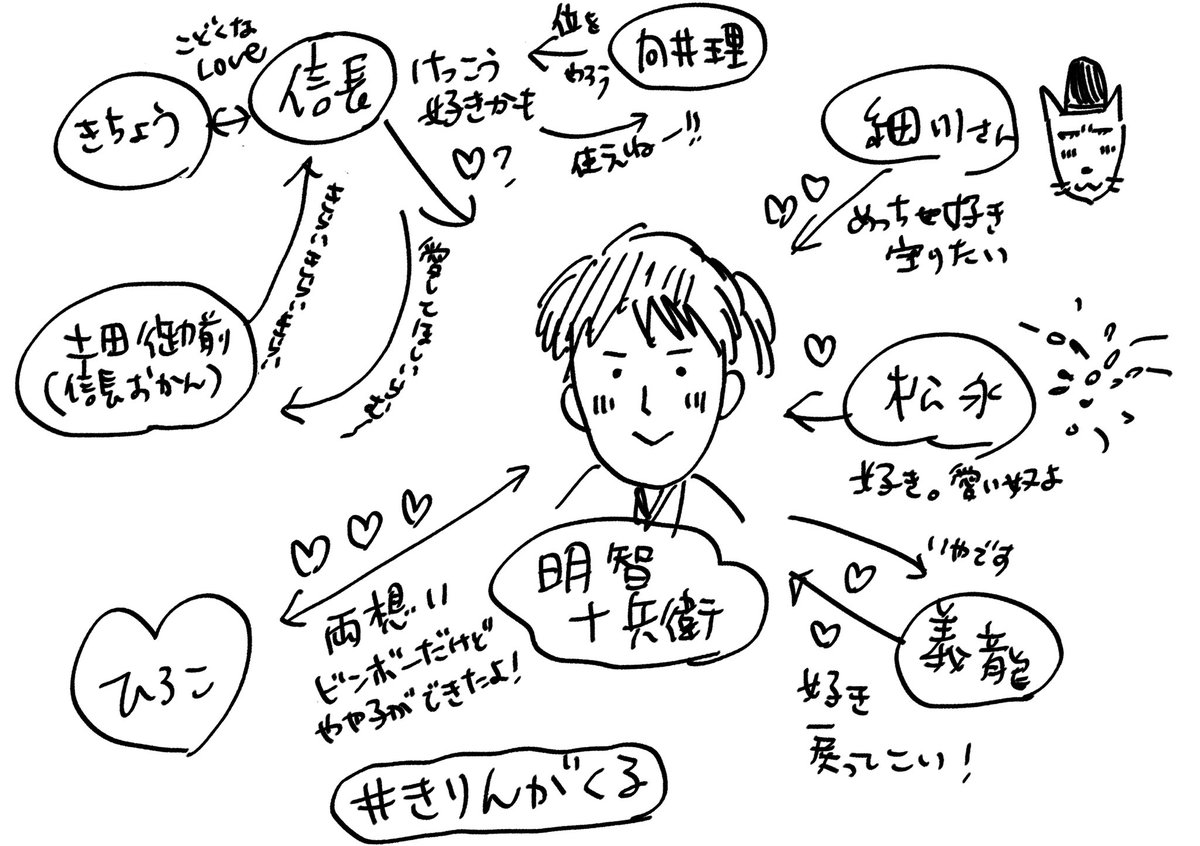 こどくな
Love
信長
きちょう
けっこう
好きかも
?
位を
やろう
向井理
使えねー!!
細川さん
めっちゃ好き
守りたい
土田御前
(信長おかん)
愛してほしいっす
松永
好き。愛い奴よ
いやです
義龍
好き
戻ってこい!
明智
十兵衛
ひろこ
両想い
ビンボーだけど
やや子ができたよ!
#きりんがくる